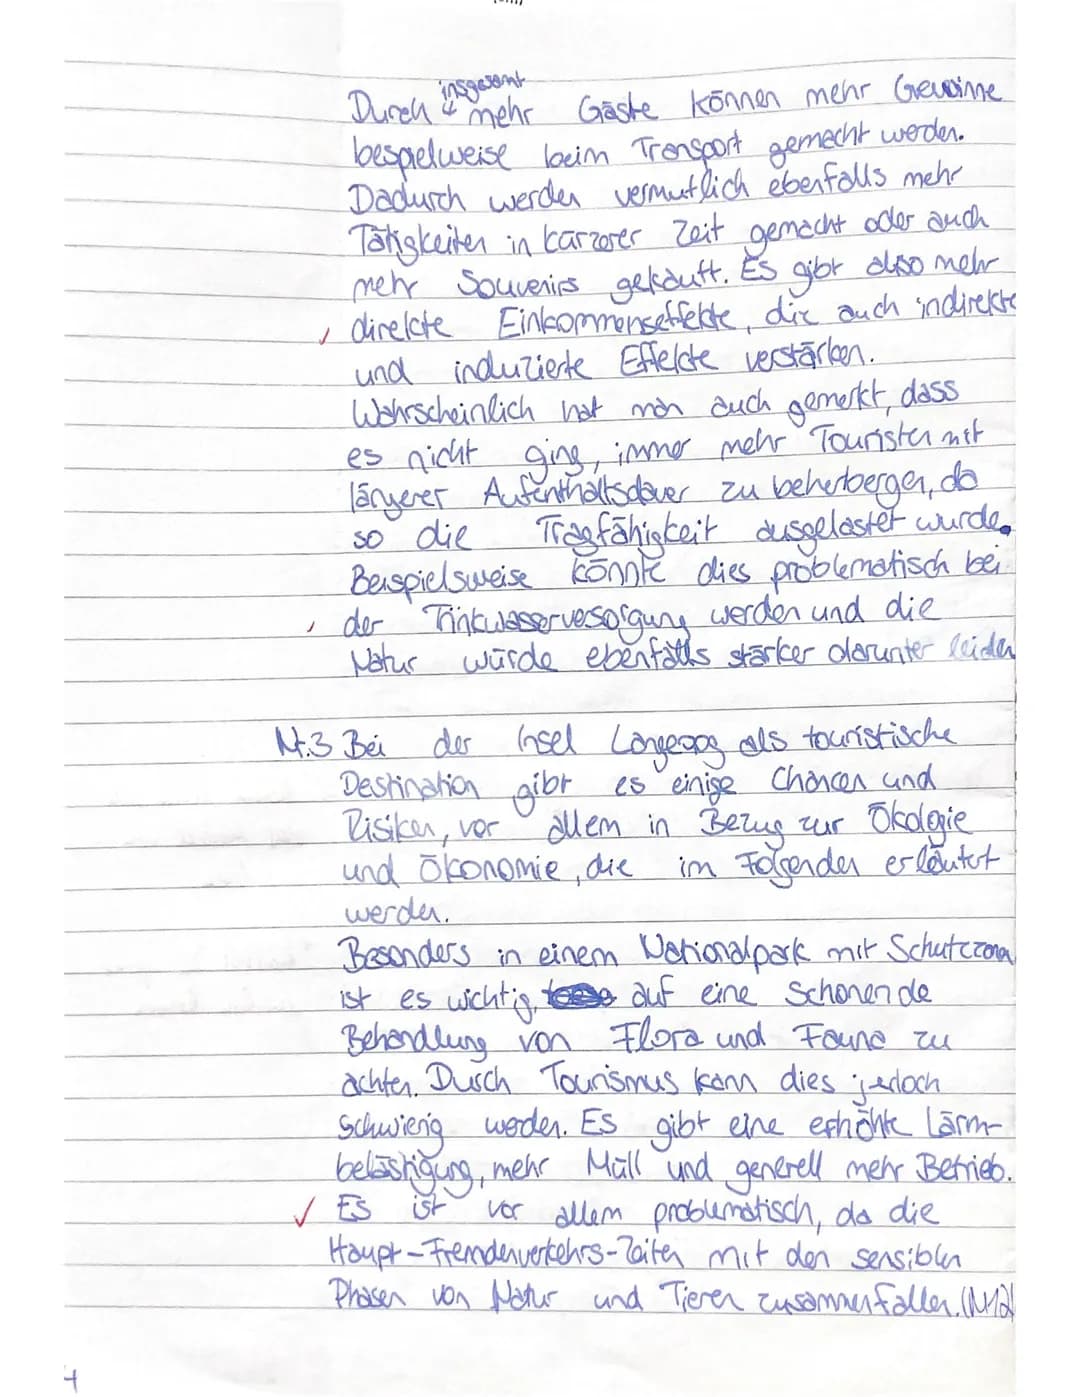 insgesamt
Durch ↓ mehr Gäste können mehr Gewinne
bespielweise beim Transport gemacht werden.
Dadurch werden vermutlich ebenfalls mehr
Tätigkeiten in kürzerer Zeit gemacht oder auch
mehr Souvenirs gekauft. Es gibt also mehr
direkte Einkommenseffekte, die auch indirekte
und induzierte Effekte verstärken.
Wahrscheinlich hat man auch gemerkt, dass
es nicht ging, immer mehr Touristen mit
längerer Aufenthaltsdauer zu beherbergen, da
so die Tragfähigkeit ausgelastet wurde.
Beispielsweise könnte dies problematisch bei
der Trinkwasserversorgung werden und die
Natur würde ebenfalls stärker darunter leiden
Nr.3 Bei der Insel Langeoog als touristische
Destination gibt es einige Chancen und
Risiken, vor allem in Bezug zur Ökologie
und Ökonomie, die im Folgenden erläutert
werden.
Besonders in einem Nationalpark mit Schutzzonen
ist es wichtig, auf eine schonende
Behandlung von Flora und Fauna zu
achten. Durch Tourismus kann dies jedoch
schwierig werden. Es gibt eine erhöhte Lärm-
belästigung, mehr Müll und generell mehr Betrieb.
Es ist vor allem problematisch, da die
Haupt-Fremdenverkehrs-Zeiten mit den sensiblen
Phasen von Natur und Tieren zusammenfallen. (M12)
4